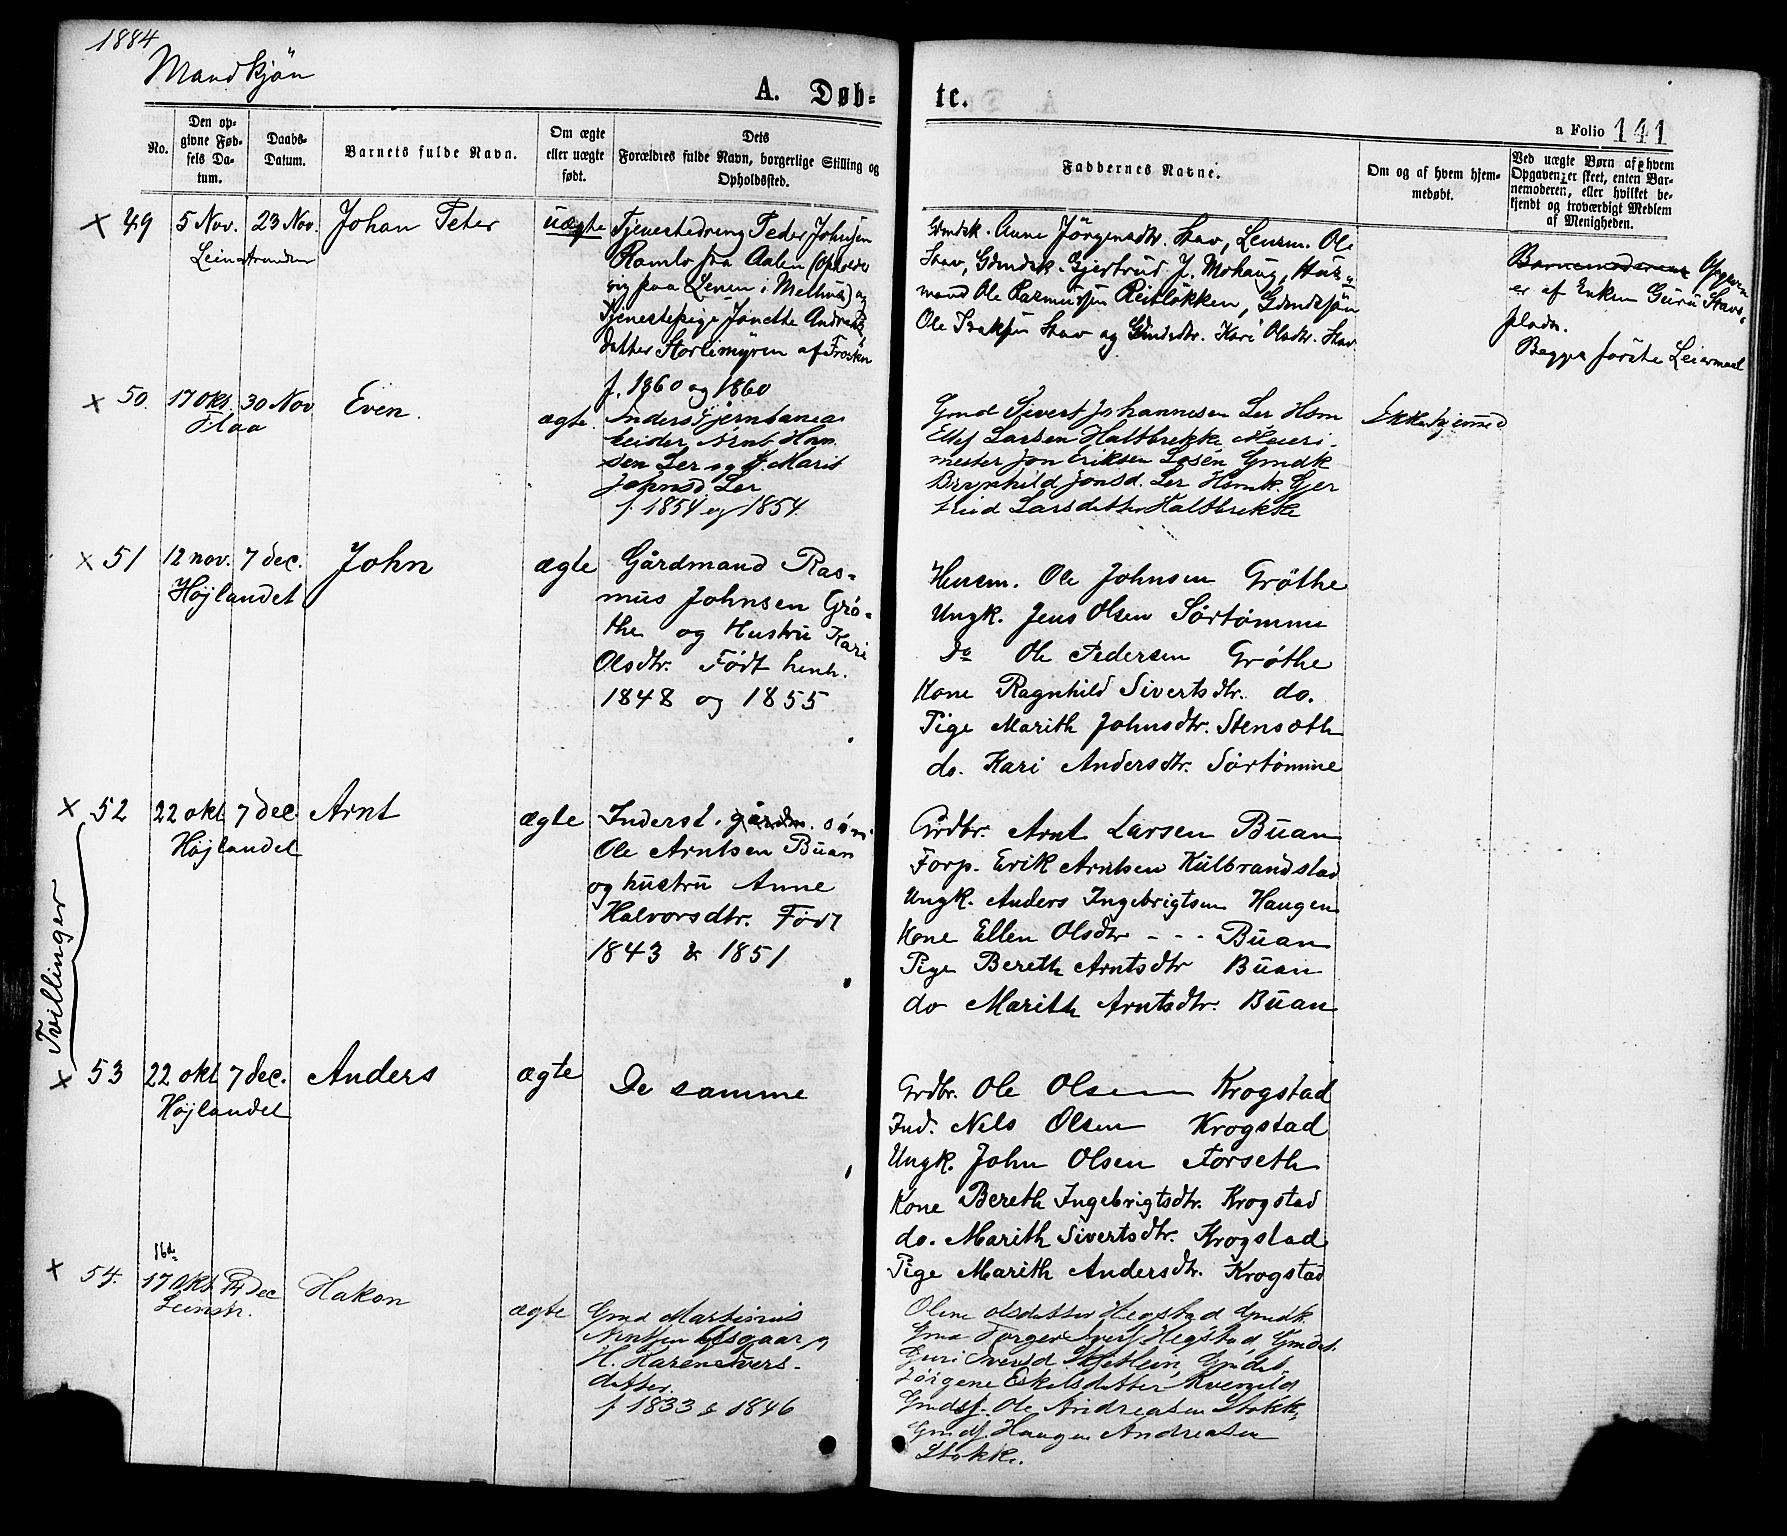 1884
Mandkjön
A. Døb-
te.
a Folio 141
No.
Den opgivne Fødsels Datum.
Daabs-Datum.
Barnets fulde Navn.
Om ægte eller uægte født.
Dets Forældres fulde Navn, borgerlige Stilling og Opholdssted.
Faddernes Navne.
Om og af hvem hjemmedøbt.
Ved uægte Børn af hvem Opgaven er skeet, enten Barnemoderen, eller hvilket bekjendt og troværdigt Medlem af Menigheden.
× 49 5 Nov. 23 Nov. Johan Peter uægte
Leinstranden
Tjenestedreng Peder Johnsen
Ramlo fra Aalen (Opholder
sig paa Lenen i Melhus) og
Tjenestepige Jonette Andreas
datter Storlimyren af
f. 1860 og 1860
Gmdsk. Anne Jörgensdtr. Stav, Lensm. Ole
Stav, Gdmdsk. Gjertrud J. Mohaug, Hus-
mand Ole Rasmussen Reitlökken, Gdmdssön
Ole Isaksen Stav og Gdmdsdtr. Kari Olsdtr. Stav
Barnemoderens Opgaven
er af Enken Guru Stavs-
pladn.
Begges første Leiermaal
× 50. 17 Okt. 30 Nov Even. ægte.
Flaa
Inders. Jernbanea
beider Arnt Han
sen Ler og H. Marit
Johnsd. Ler
f. 1854 og 1854.
Gmd Sivert Johannesen Ler Hsm
Ellef Larsen Haltbrekke Meieri-
mester Jon Eriksen Losen Gmdk
Brynhild Jonsd. Ler Hsmk. Gjer
trud Larsdatter Haltbrekke
Ikke hjemmed
× 51 12 nov. 7 dec. John ægte
Højlandet
Gårdmand Ras-
mus Johnsen Grö-
the og Hustru Kari
Olsdtr. Født henh.
1848 og 1855
Husm. Ole Johnsen Gröthe
Ungk. Jens Olsen Sørtømme
Do Ole Pedersen Grøthe
Kone Ragnhild Sivertsdtr. do.
Pige Marith Johnsdtr. Stensæth
do. Kari Andersdtr. Sørtømme
Tvillinger
× 52 22 okt 7 dec. Arnt ægte
Højlandet
Inderst. gårdm. søn
Ole Arntsen Buan
og hustru Anne
Halvorsdtr. Født
1843 & 1851
Grdbr. Arnt Larsen Buan
Forp. Erik Arntsen Kulbrandstad
Ungk. Anders Ingebrigtsen Haugen
Kone Ellen Olsdtr - - - Buan
Pige Bereth Arntsdtr Buan
do Marith Arntsdtr. Buan
× 53 22 okt 7 dec. Anders ægte
Højlandet
De samme
Grdbr. Ole Olsen Krogstad
Ind. Nils Olsen Krogstad
Ungk. John Olsen Forseth
Kone Bereth Ingebrigtsdtr. Krogstad
do. Marith Sivertsdtr. Krogstad
Pige Marith Andersdtr. Krogstad
16de
× 54. 17 Okt. Dec Hakon ægte
Leinstr.
Gmd Martinus
Arntsen og
H. Karen Ivers-
datter.
f 1833 & 1846
Oline Olsdatter Hegstad Gmdk.
Gmd Torger Ivers Hegstad, Gmdst.
Guri Iversd. Skjetlein, Gmdst.
Jörgene Eskelsdatter Kvenild
Gmdsf. Ole Andreasen Stokke
Gmdsf. Haagen Andreasen
Stokke.